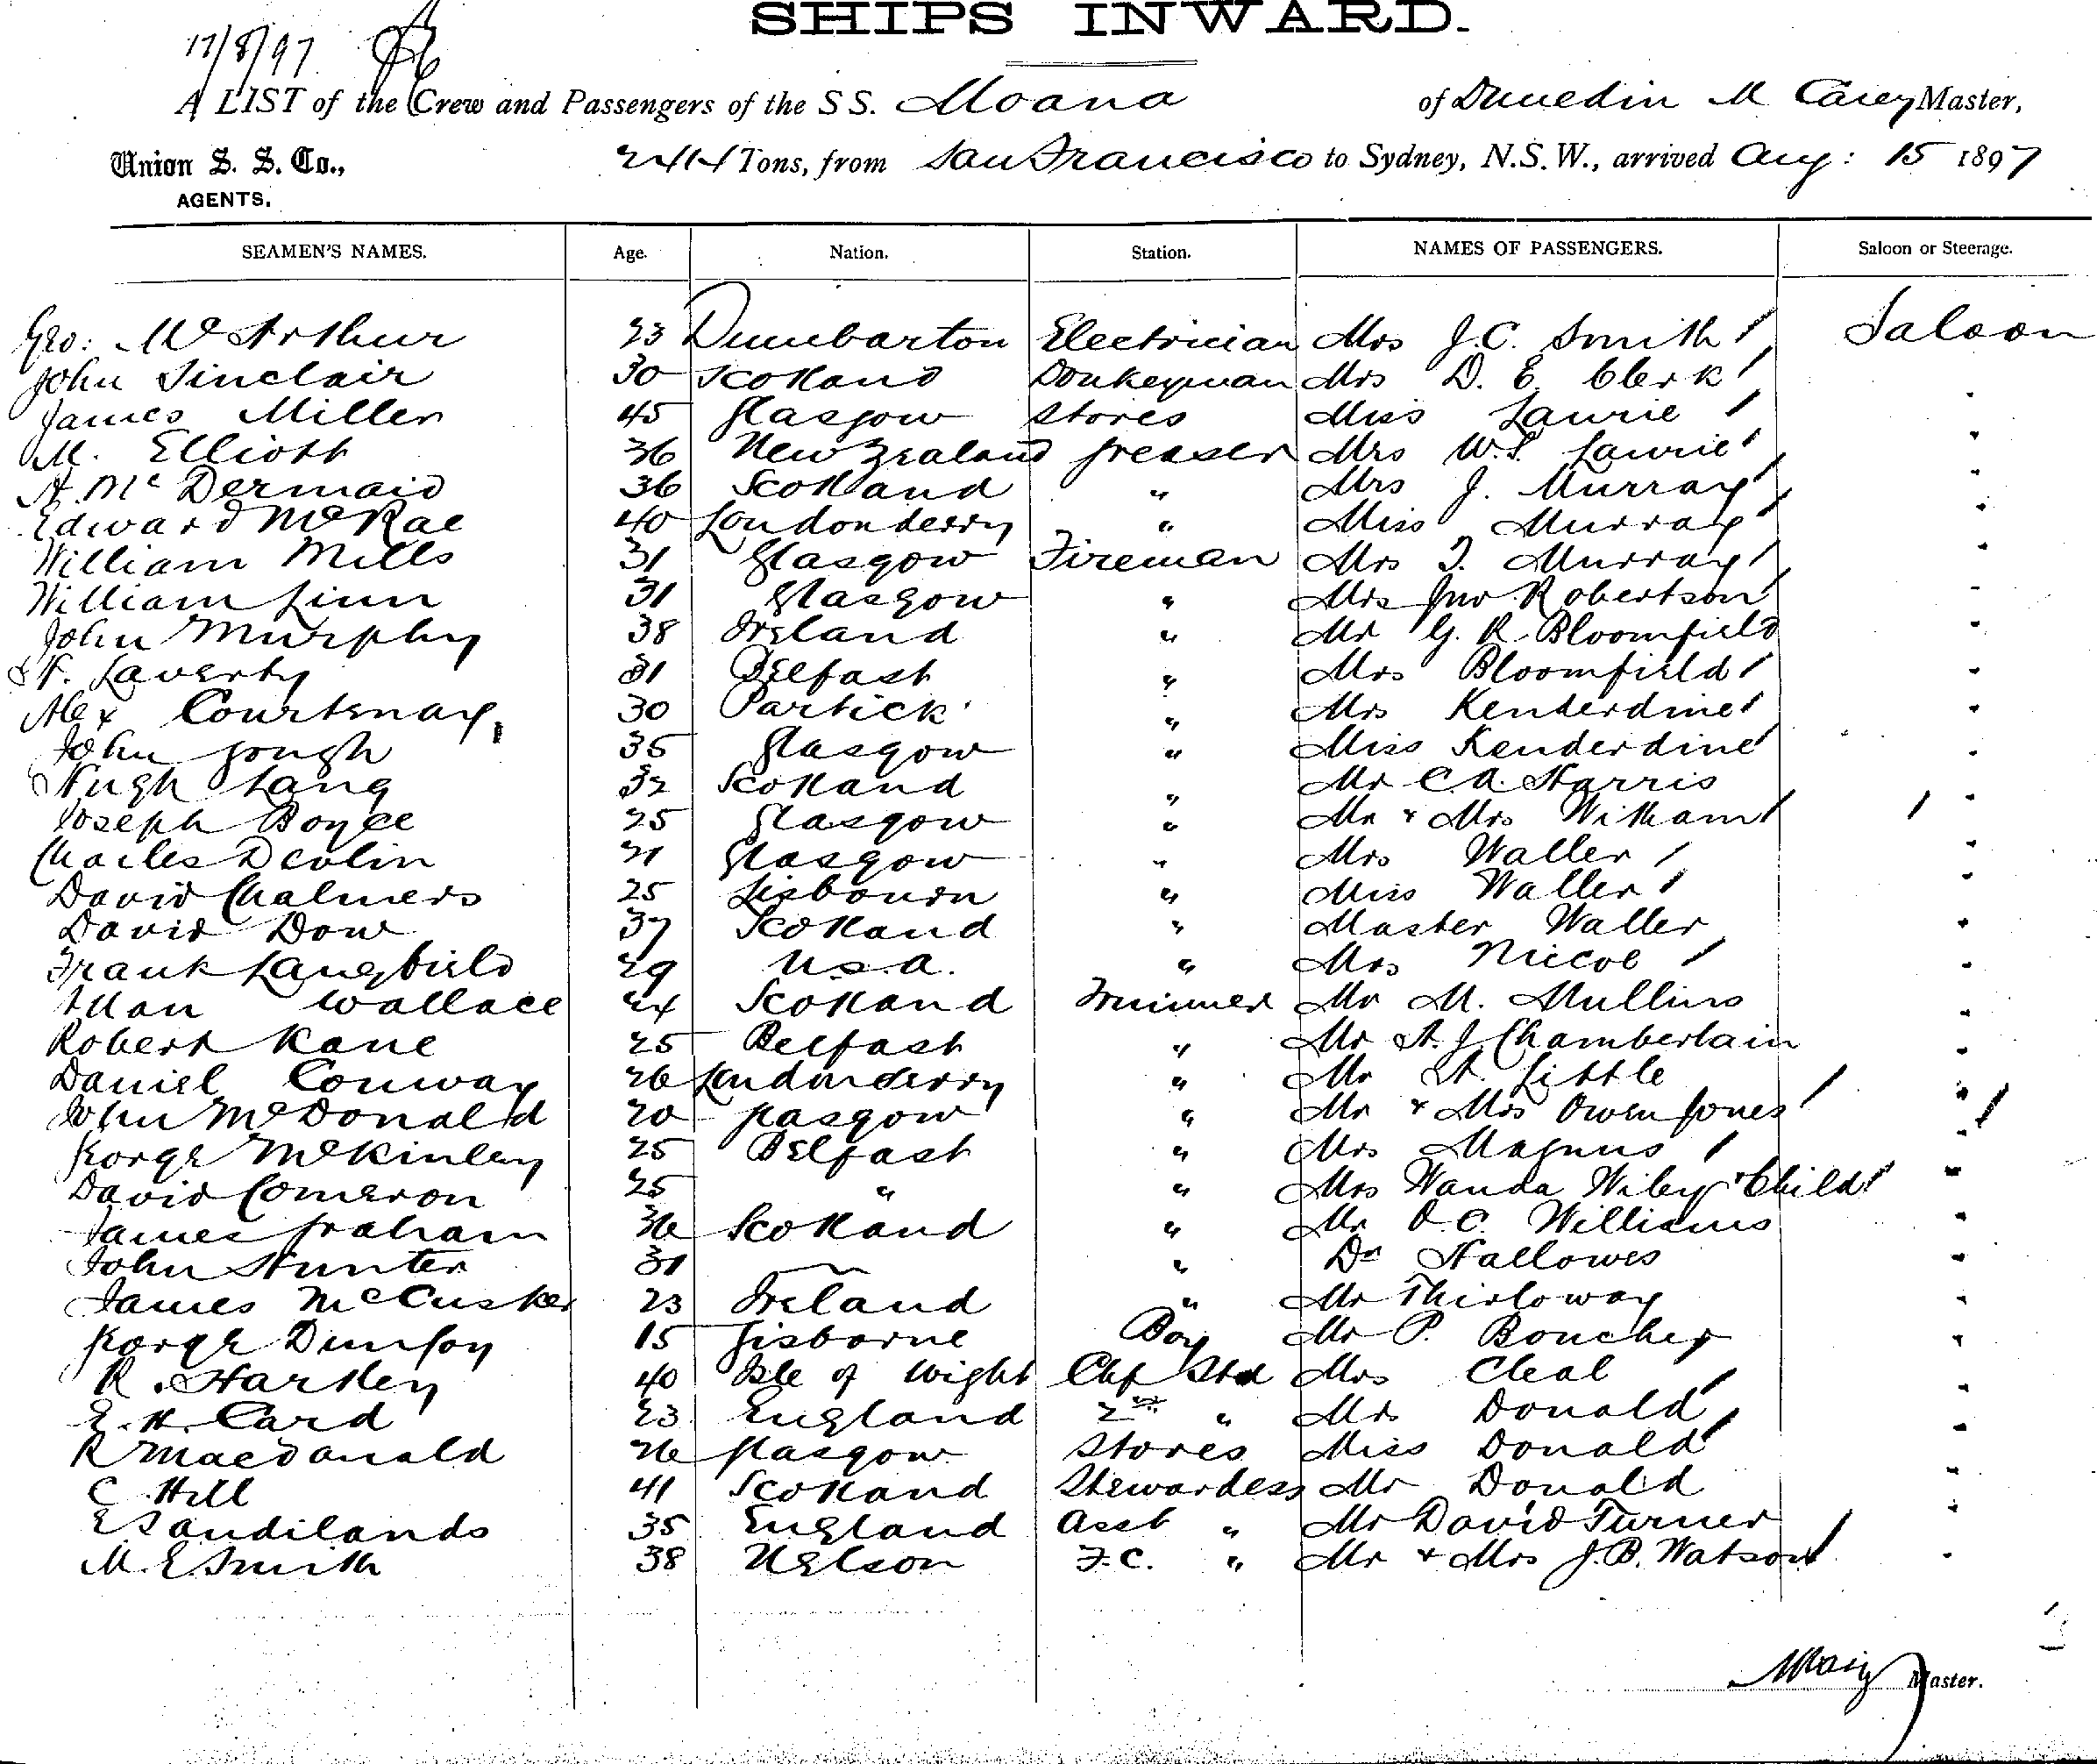 SHIPS INWARD.
17/8/97
A LIST of the Crew and Passengers of the SS. Moana of Dunedin M Carey Master,
Union S. S. Co., 2414 Tons, from San Francisco to Sydney, N.S.W., arrived Aug: 15 1897
AGENTS.
SEAMEN'S NAMES. Age. Nation. Station. NAMES OF PASSENGERS. Saloon or Steerage.
Geo: McArthur 23 Dumbarton Electrician Mrs J.C. Smith Saloon
John Sinclair 30 Scotland Donkeyman Mrs D. E. Clerk
James Miller 45 Glasgow Stores Miss Laurie "
M. Elliott 36 New Zealand Greaser Mrs W.S. Laurie "
A. McDermaid 36 Scotland " Mrs J. Murray "
Edward McRae 40 Londonderry " Miss Murray "
William Mills 31 Glasgow Fireman Mrs T. Murray "
William Linn 31 Glasgow " Mrs Jno Robertson "
John Murphy 38 Ireland " Mr G. R. Bloomfield "
H. Laverty 31 Belfast " Mrs Bloomfield "
Alex Courtenay 30 Partick " Mrs Kenderdine "
John Gough 35 Glasgow " Miss Kenderdine "
Hugh Lang 32 Scotland " Mr C.A. Harris
Joseph Boyce 25 Glasgow " Mr & Mrs Witham "
Charles Devlin 21 Glasgow " Mrs Waller "
David Chalmers 25 Lisbourn " Miss Waller "
David Dow 37 Scotland " Master Waller "
Frank Langfield 29 U.S.A. " Mrs Niccol "
Allan Wallace 24 Scotland Trimmer Mr M. Mullins "
Robert Kane 25 Belfast " Mr A. J. Chamberlain "
Daniel Conway 26 Londonderry " Mr A. Little "
John McDonald 20 Glasgow " Mr & Mrs Owen Jones "
George McKinley 25 Belfast " Mrs Magnus "
David Comeron 25 " " Mrs Wanda Wiley & Child "
James Graham 36 Scotland " Mr O.C. Williams "
John Hunter 31 " Dr Hallowes "
James McCusker 23 Ireland " Mr Thirloway "
George Dunfoy 15 Gisborne Boy Mr P. Boucher "
R. Hartley 40 Isle of Wight Chf Std Mrs Cleal "
E. H. Card 23 England 2nd " Mrs Donald "
R Macdonald 26 Glasgow Stores Miss Donald "
C. Hill 41 Scotland Stewardess Mr Donald "
E Sandilands 35 England Asst " Mr David Turner "
M. E Smith 38 Nelson F.C. " Mr & Mrs J.B. Watson "
M Carey Master.